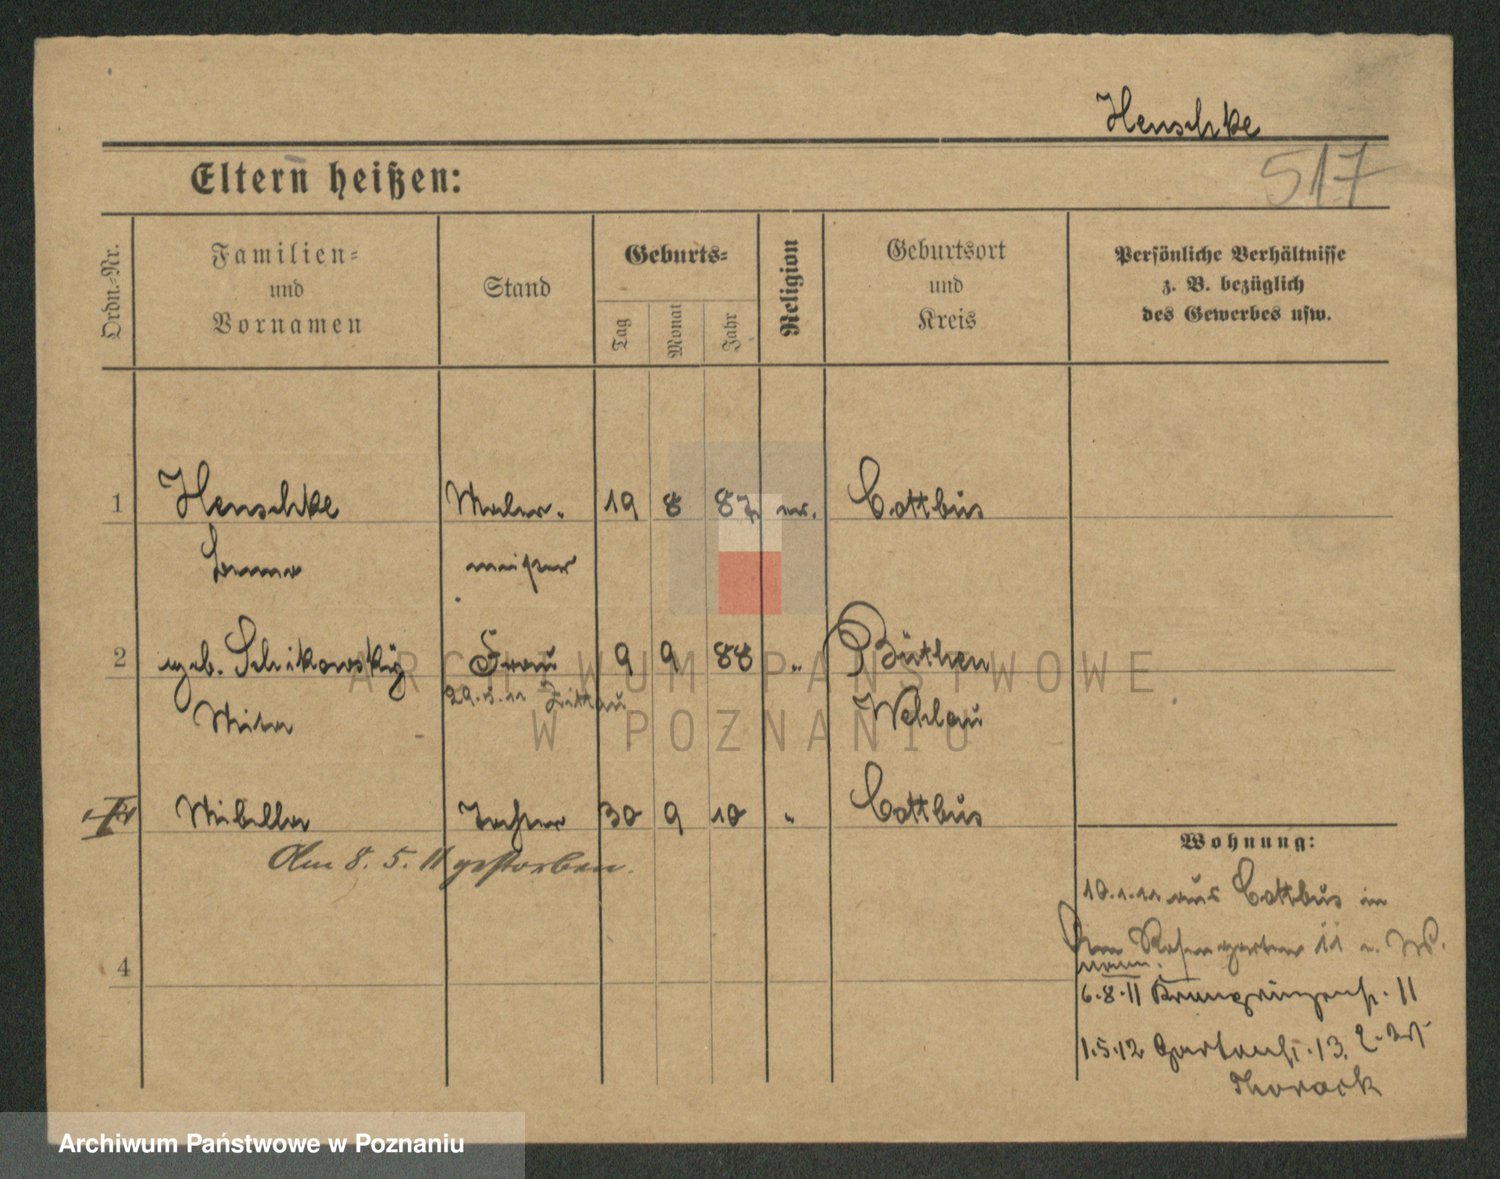 Henschke
517
Eltern heißen:
Ordn.-Nr.
Familien=
und
Vornamen
Stand
Geburts=
Tag
Monat
Jahr
Religion
Geburtsort
und
Kreis
Persönliche Verhältnisse
z. B. bezüglich
des Gewerbes usw.
1 Henschke Maler- 19 8 87 ev. Cottbus
meister
2 geb. Schikowsky Frau 9 9 88 " Büthen
29.5.11 Zittau
Wehlau
Tochter 30 9 10 " Cottbus
Am 8. 5. 11 gestorben.
Wohnung:
10.1.11 aus Cottbus in
Rosengarten 11
6.8.11 11
1.5.12 Gartenstr. 13.
4
ARCHIWUM PAŃSTWOWE
W POZNANIU
Archiwum Państwowe w Poznaniu